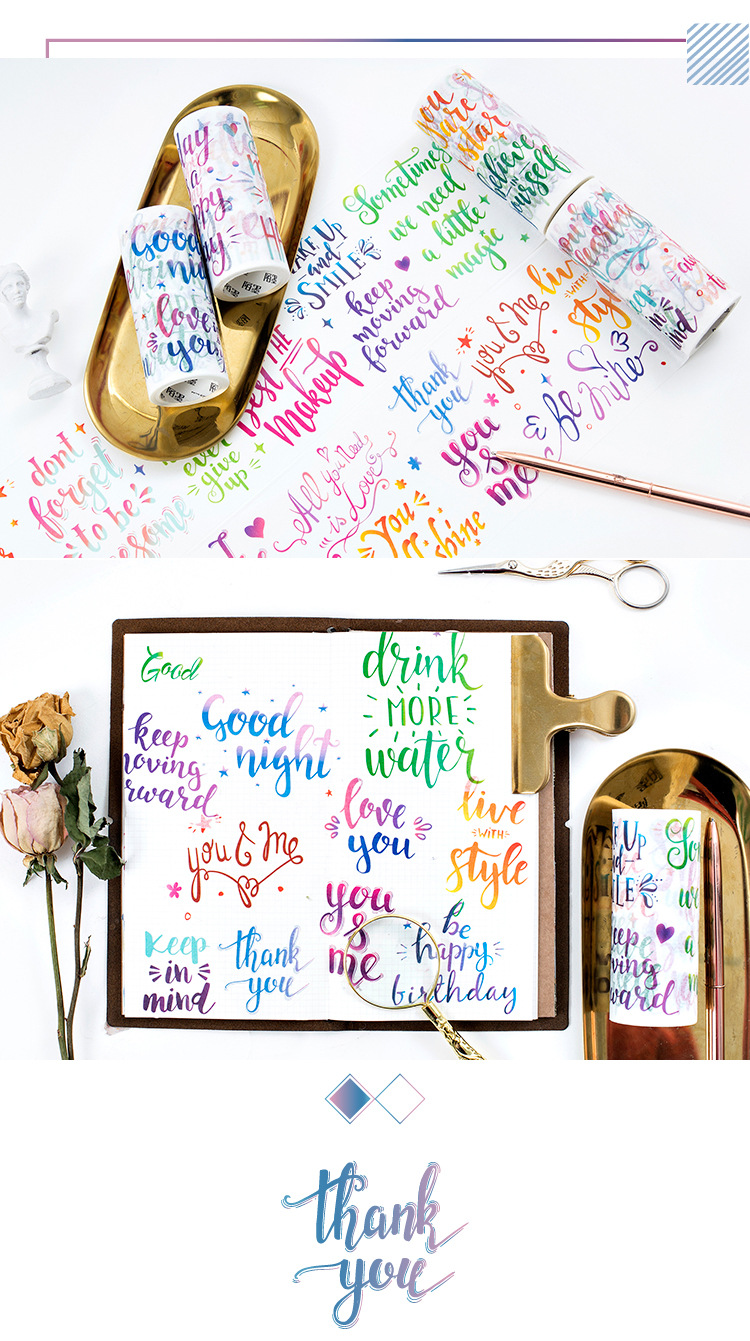 you
are
star
believe
in
yourself
day
a
happy
day
Good
love
you
Up
and
SMILE
Sometimes
we need
a little
magic
keep
moving
forward
live
WITH
style
you & Me
Be Mine
thank
you
Best THE
Makeup
you
&
me
dont
forget
to be
esome
ever
give
up
All you Need
is Love
You
shine
keep
in
mind
Good
Good
night
drink
MORE
water
keep
oving
rward
love
you
live
WITH
style
you & Me
you
&
me
keep
in
mind
thank
you
be
happy
birthday
Up
and
ILE
eep
oving
ward
thank
you